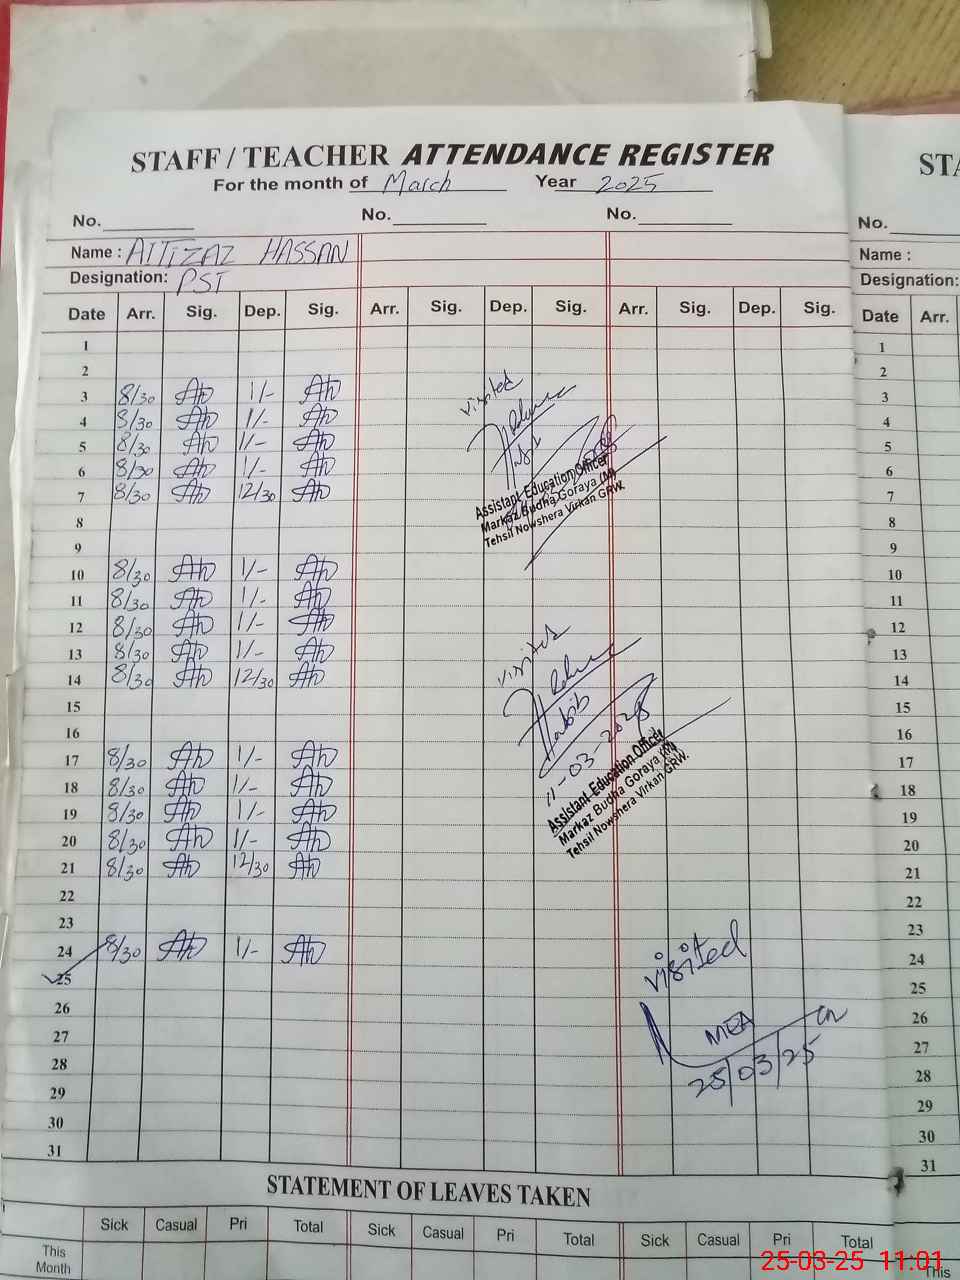 STAFF / TEACHER ATTENDANCE REGISTER
For the month of March Year 2025
No. No. No.
Name : AITIZAZ HASSAN
Designation: PST
Date Arr. Sig. Dep. Sig. Arr. Sig. Dep. Sig. Arr. Sig. Dep. Sig.
1
2
3 8/30 1/-
4 8/30 1/-
5 8/30 1/-
6 8/30 1/-
7 8/30 12/30
8
9
10 8/30 1/-
11 8/30 1/-
12 8/30 1/-
13 8/30 1/-
14 8/30 12/30
15
16
17 8/30 1/-
18 8/30 1/-
19 8/30 1/-
20 8/30 1/-
21 8/30 12/30
22
23
24 8/30 1/-
25
26
27
28
29
30
31
visited
Assistant Education Officer
Markaz Budha Goraya (M)
Tehsil Nowshera Virkan GRW.
visited
Habib
11-03-2025
Assistant Education Officer
Markaz Budha Goraya (M)
Tehsil Nowshera Virkan GRW.
visited
MEA
25/03/25
STATEMENT OF LEAVES TAKEN
Sick Casual Pri Total Sick Casual Pri Total Sick Casual Pri Total
This
Month
STA
No.
Name :
Designation:
Date Arr.
1
2
3
4
5
6
7
8
9
10
11
12
13
14
15
16
17
18
19
20
21
22
23
24
25
26
27
28
29
30
31
This
25-03-25 11:01